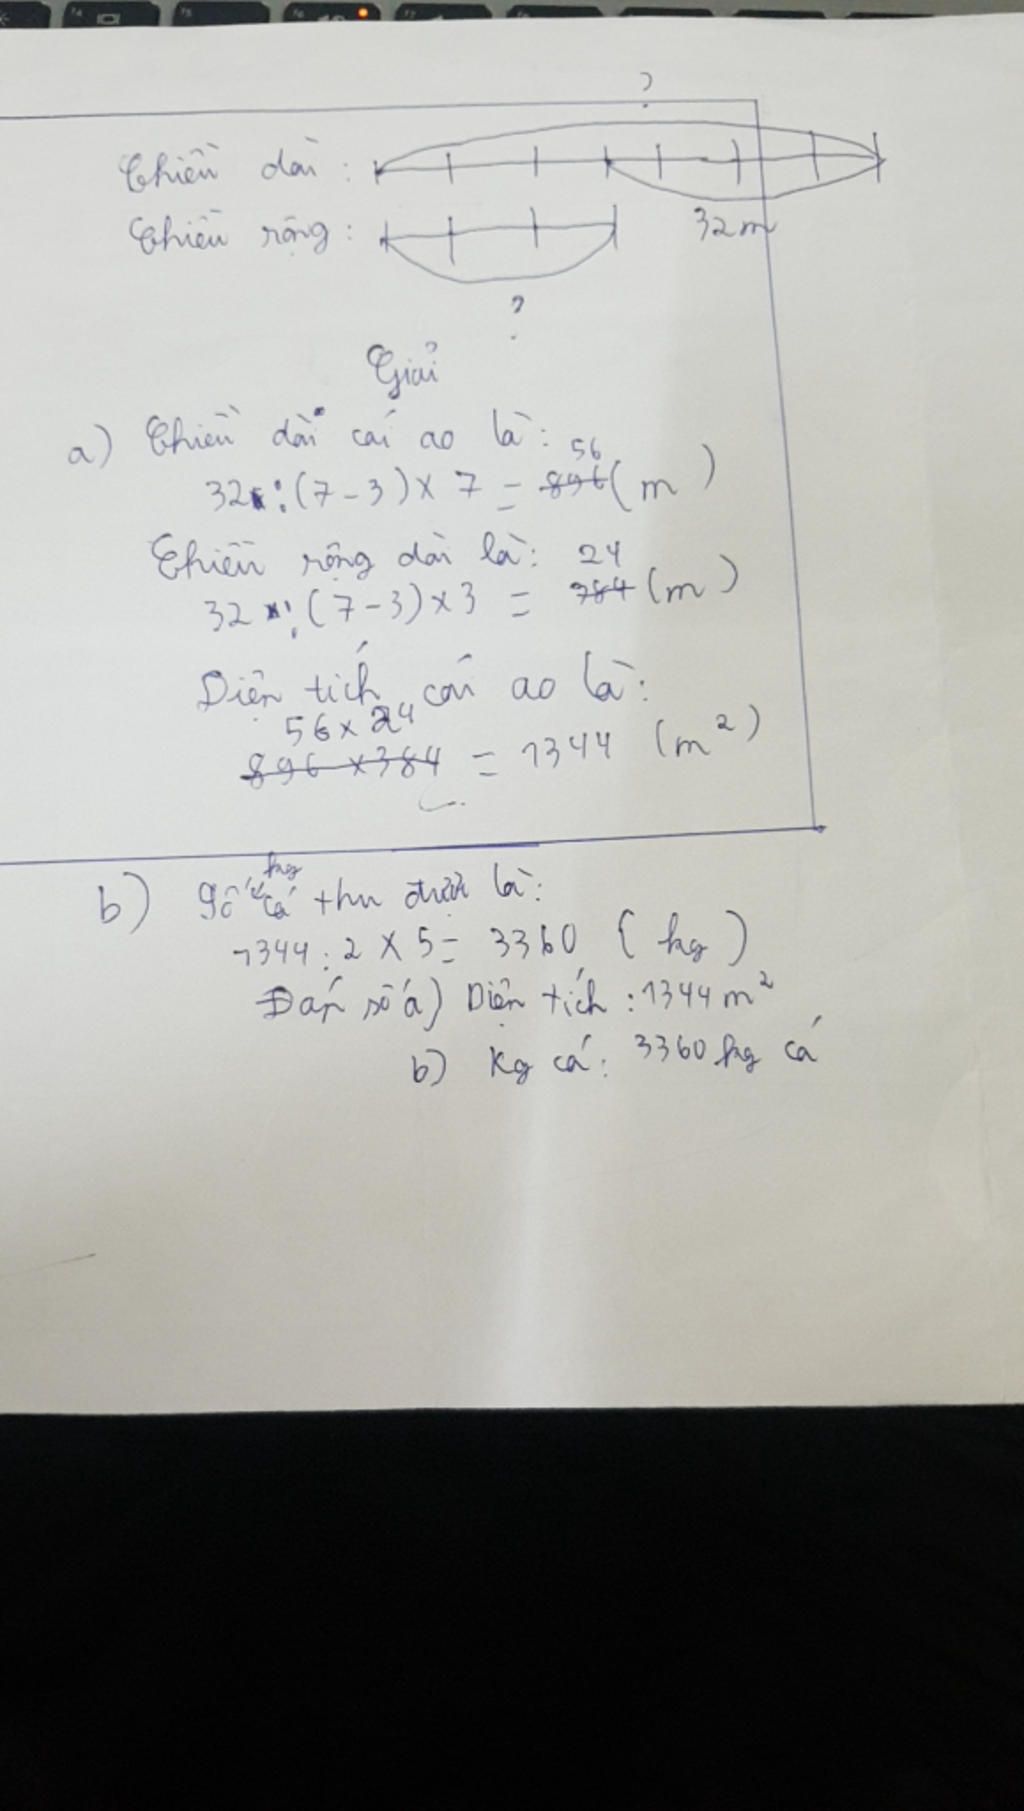 ?
Chiều dài :
32m
Chiều rộng :
?
Giải
a) Chiều dài cái ao là:
56
32 : (7-3) × 7 = 896 (m)
Chiều rộng dài là:
24
32 : (7-3) × 3 = 384 (m)
Diện tích cái ao là:
56 × 24
896 × 384 = 1344 (m²)
kg
b) Số cá thu được là:
1344 : 2 × 5 = 3360 (kg)
Đáp số a) Diện tích : 1344 m²
b) Kg cá : 3360 kg cá